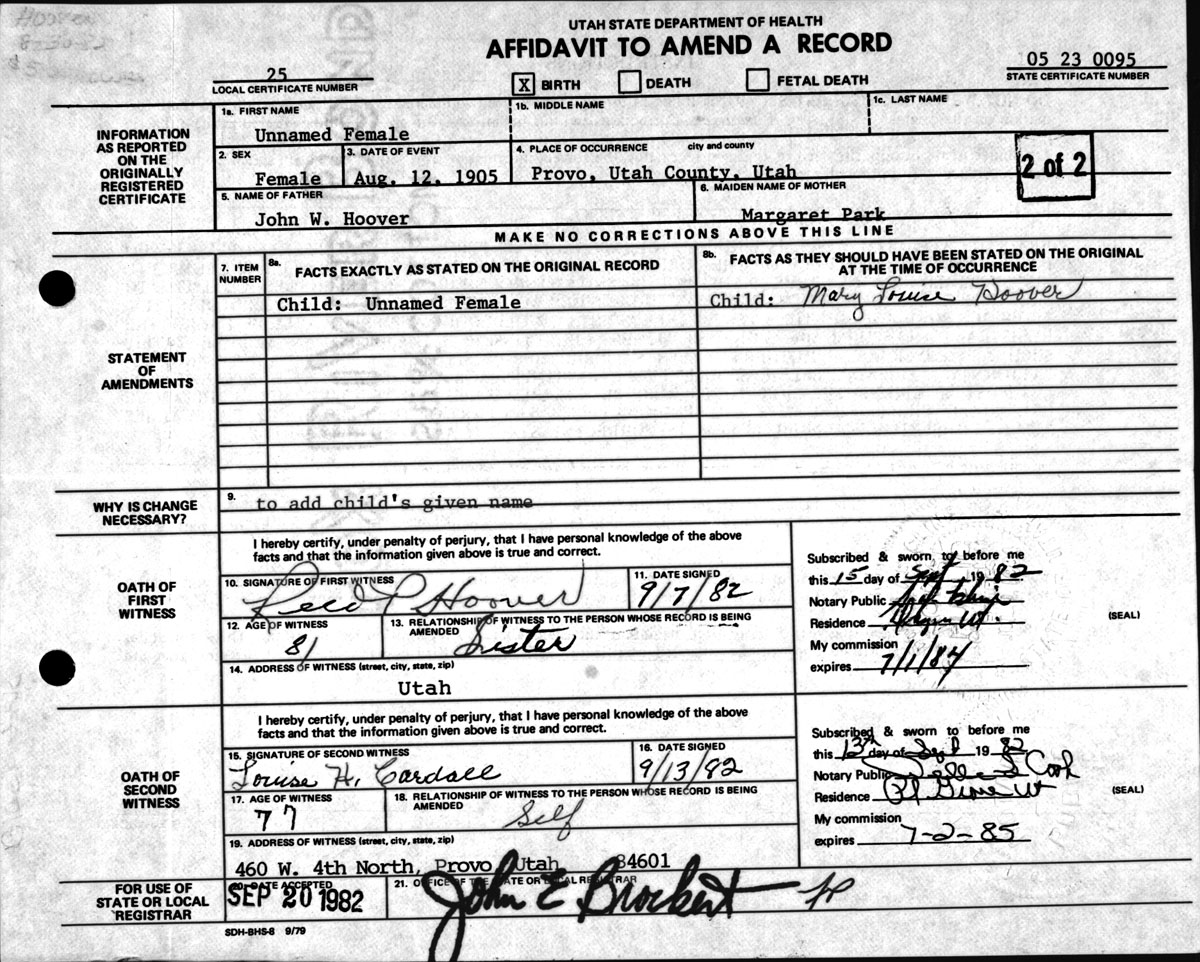 HOOVER
8-30-82
UTAH STATE DEPARTMENT OF HEALTH
AFFIDAVIT TO AMEND A RECORD
25
LOCAL CERTIFICATE NUMBER
X BIRTH DEATH FETAL DEATH
05 23 0095
STATE CERTIFICATE NUMBER
INFORMATION AS REPORTED ON THE ORIGINALLY REGISTERED CERTIFICATE
1a. FIRST NAME 1b. MIDDLE NAME 1c. LAST NAME
Unnamed Female
2. SEX 3. DATE OF EVENT 4. PLACE OF OCCURRENCE city and county
Female Aug. 12, 1905 Provo, Utah County, Utah
2 of 2
5. NAME OF FATHER 6. MAIDEN NAME OF MOTHER
John W. Hoover Margaret Park
MAKE NO CORRECTIONS ABOVE THIS LINE
STATEMENT OF AMENDMENTS
7. ITEM NUMBER 8a. FACTS EXACTLY AS STATED ON THE ORIGINAL RECORD 8b. FACTS AS THEY SHOULD HAVE BEEN STATED ON THE ORIGINAL AT THE TIME OF OCCURRENCE
Child: Unnamed Female Child: Mary Louise Hoover
WHY IS CHANGE NECESSARY?
9. to add child's given name
OATH OF FIRST WITNESS
I hereby certify, under penalty of perjury, that I have personal knowledge of the above
facts and that the information given above is true and correct.
10. SIGNATURE OF FIRST WITNESS 11. DATE SIGNED
Reed P Hoover 9/7/82
12. AGE OF WITNESS 13. RELATIONSHIP OF WITNESS TO THE PERSON WHOSE RECORD IS BEING AMENDED
81 Sister
14. ADDRESS OF WITNESS (street, city, state, zip)
Utah
Subscribed & sworn to before me
this 15 day of Sept 1982
Notary Public
Residence
My commission
expires 7/1/84
(SEAL)
OATH OF SECOND WITNESS
I hereby certify, under penalty of perjury, that I have personal knowledge of the above
facts and that the information given above is true and correct.
15. SIGNATURE OF SECOND WITNESS 16. DATE SIGNED
Louise H. Cardall 9/13/82
17. AGE OF WITNESS 18. RELATIONSHIP OF WITNESS TO THE PERSON WHOSE RECORD IS BEING AMENDED
77 Self
19. ADDRESS OF WITNESS (street, city, state, zip)
460 W. 4th North, Provo Utah 84601
Subscribed & sworn to before me
this 13th day of Sept 1982
Notary Public Cook
Residence Pl Grove Ut
My commission
expires 7-2-85
(SEAL)
FOR USE OF STATE OR LOCAL REGISTRAR
20. DATE ACCEPTED 21. OFFICE OF THE STATE OR LOCAL REGISTRAR
SEP 20 1982 John E Brockert
SDH-BHS-8 9/79